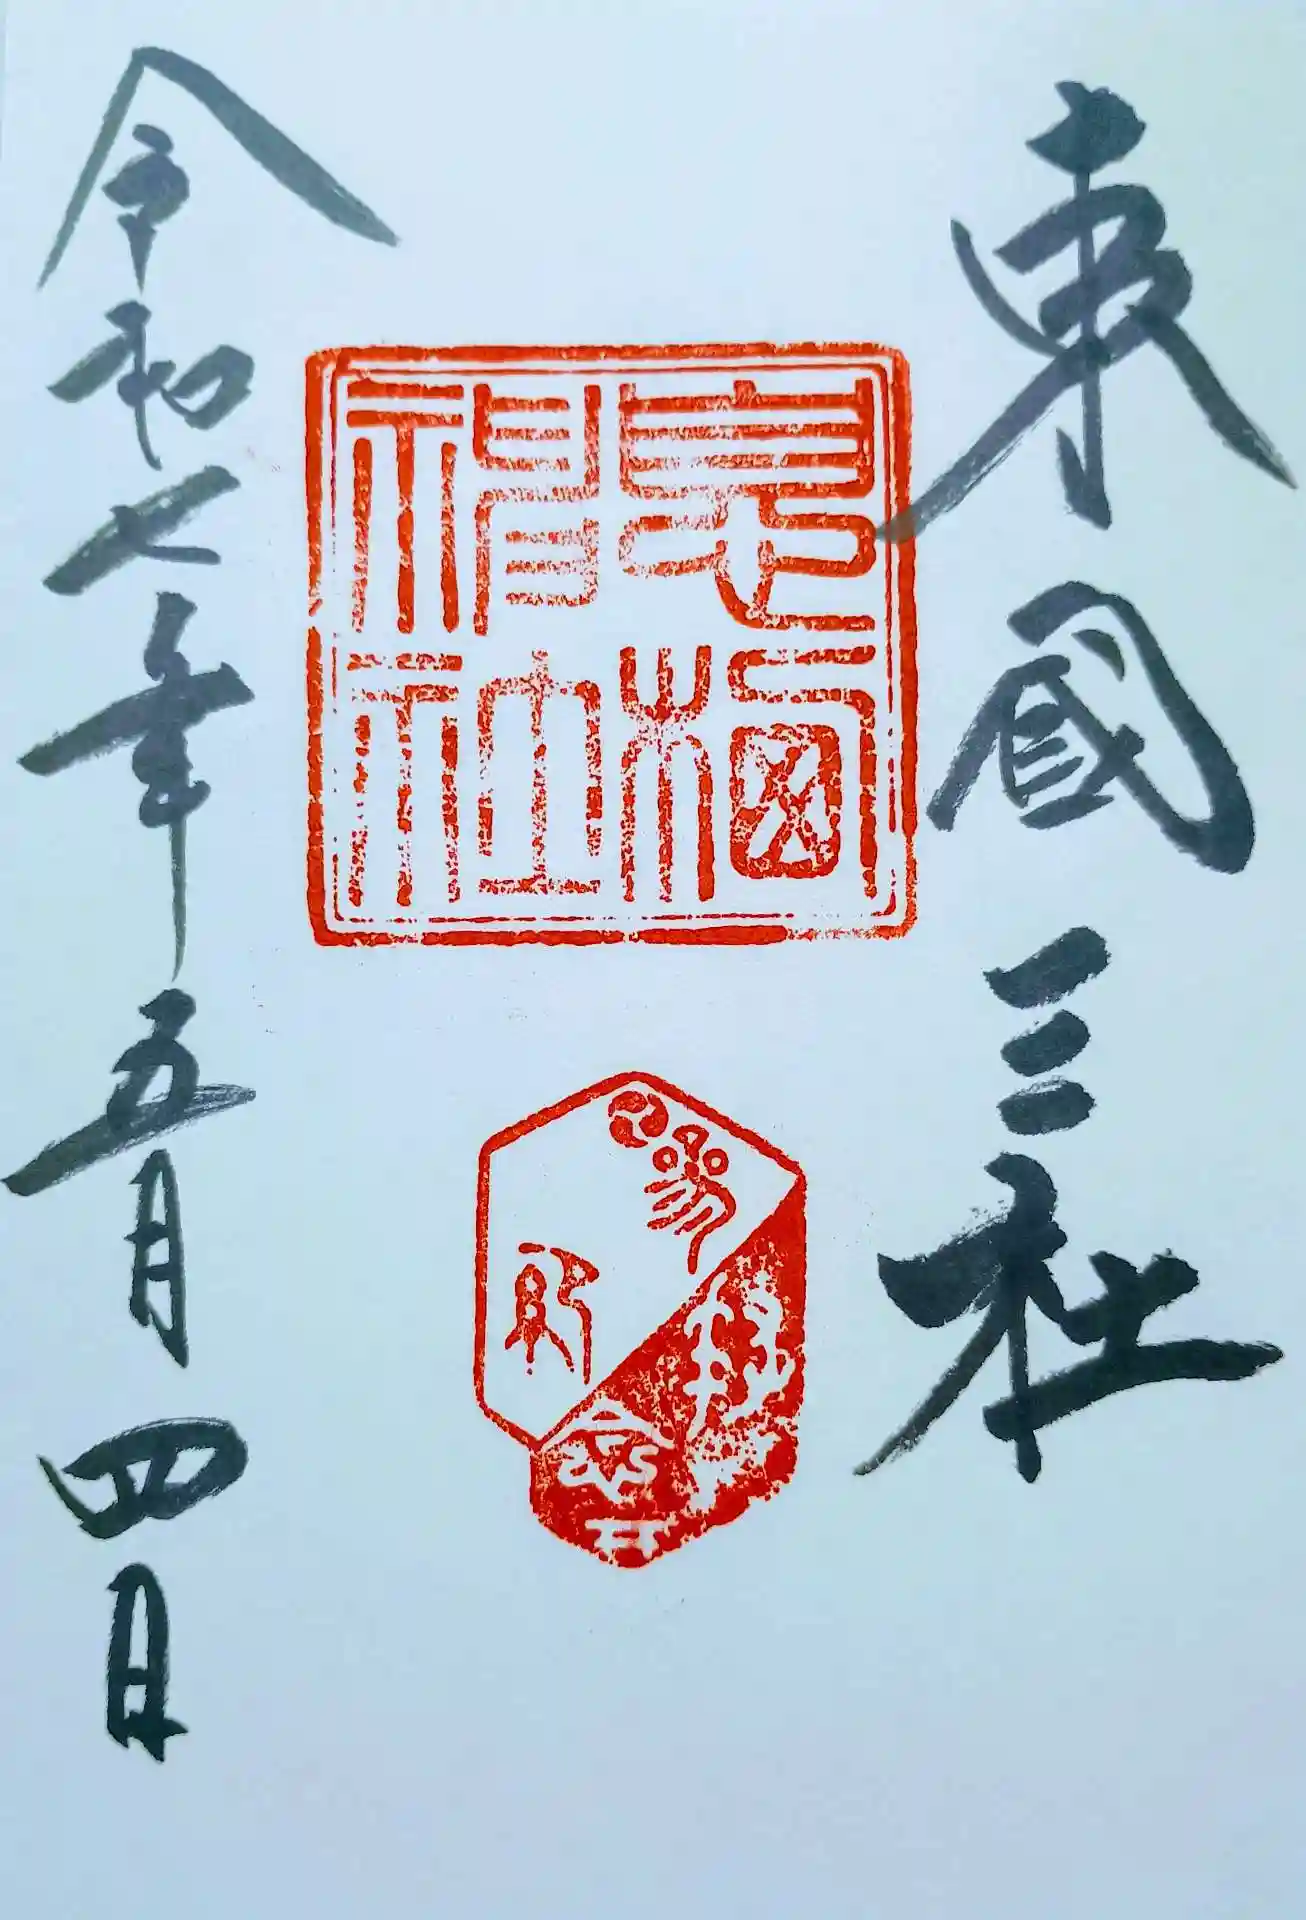 東國三社
息栖
神社
令和七年五月四日